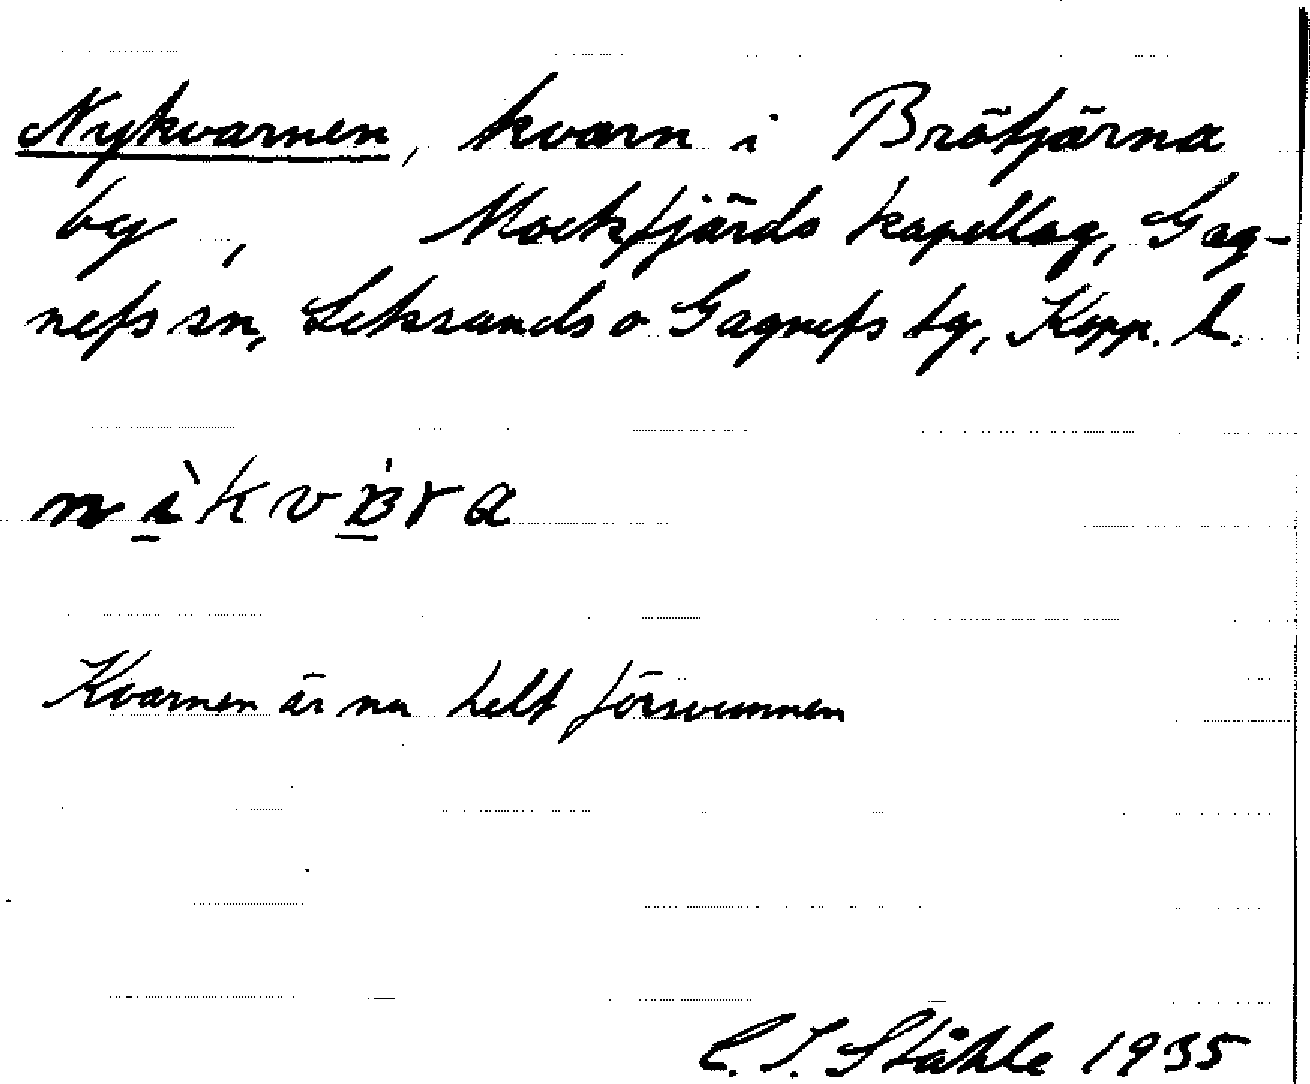 Nykvarnen, kvarn i Brötjärna
by, Mockfjärds kapellag, Gag-
nefs sn, Leksands o Gagnefs tg, Kopp. l.
Kvarnen är nu helt försvunnen
C. I. Ståhle 1935